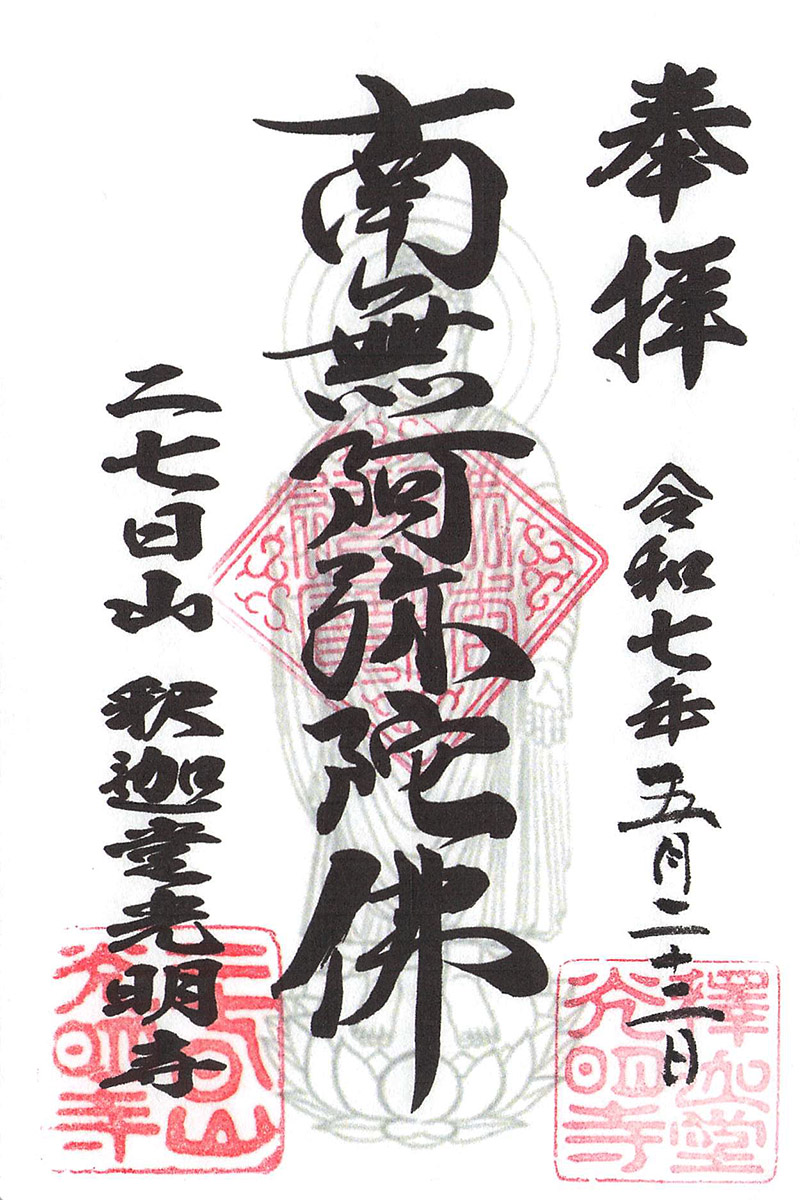 奉拝
令和七年五月二十三日
南無阿弥陀佛
二七日山 釈迦堂光明寺
釋迦堂
光明寺
二七日山
光明寺